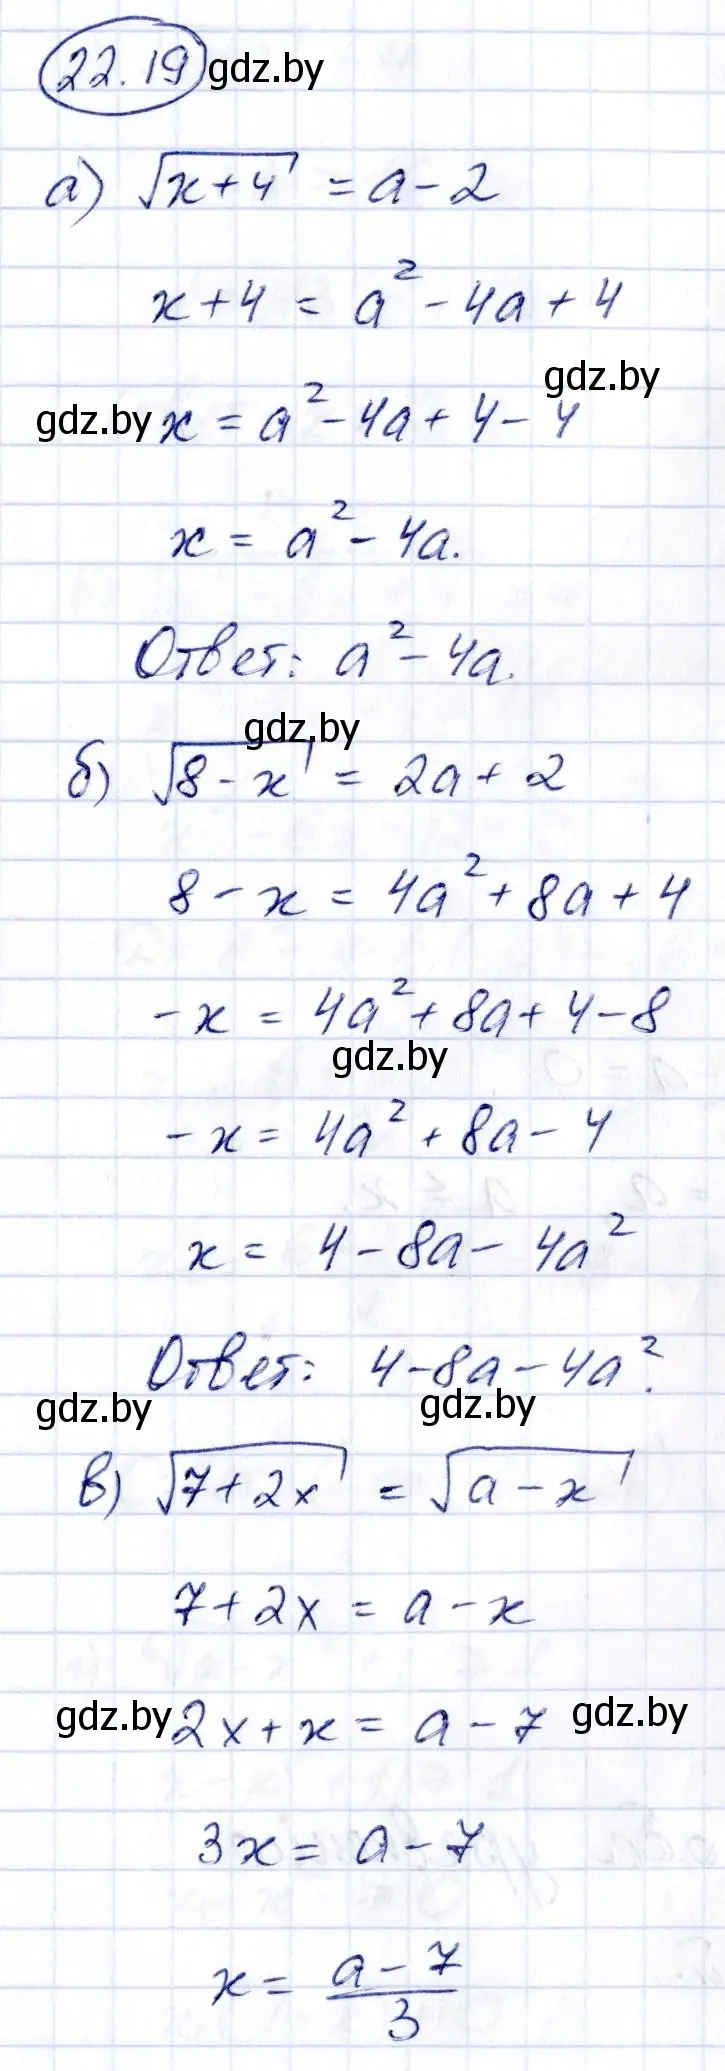 22.19 gdz.by
а) √(x+4) = a - 2
x + 4 = a² - 4a + 4
gdz.by
gdz.by x = a² - 4a + 4 - 4
x = a² - 4a.
Ответ: a² - 4a.
gdz.by
б) √(8 - x) = 2a + 2
8 - x = 4a² + 8a + 4
-x = 4a² + 8a + 4 - 8
gdz.by
-x = 4a² + 8a - 4
x = 4 - 8a - 4a²
Ответ: 4 - 8a - 4a².
gdz.by gdz.by
в) √(7 + 2x) = √(a - x)
7 + 2x = a - x
gdz.by 2x + x = a - 7 gdz.by
3x = a - 7
x = (a - 7)/3